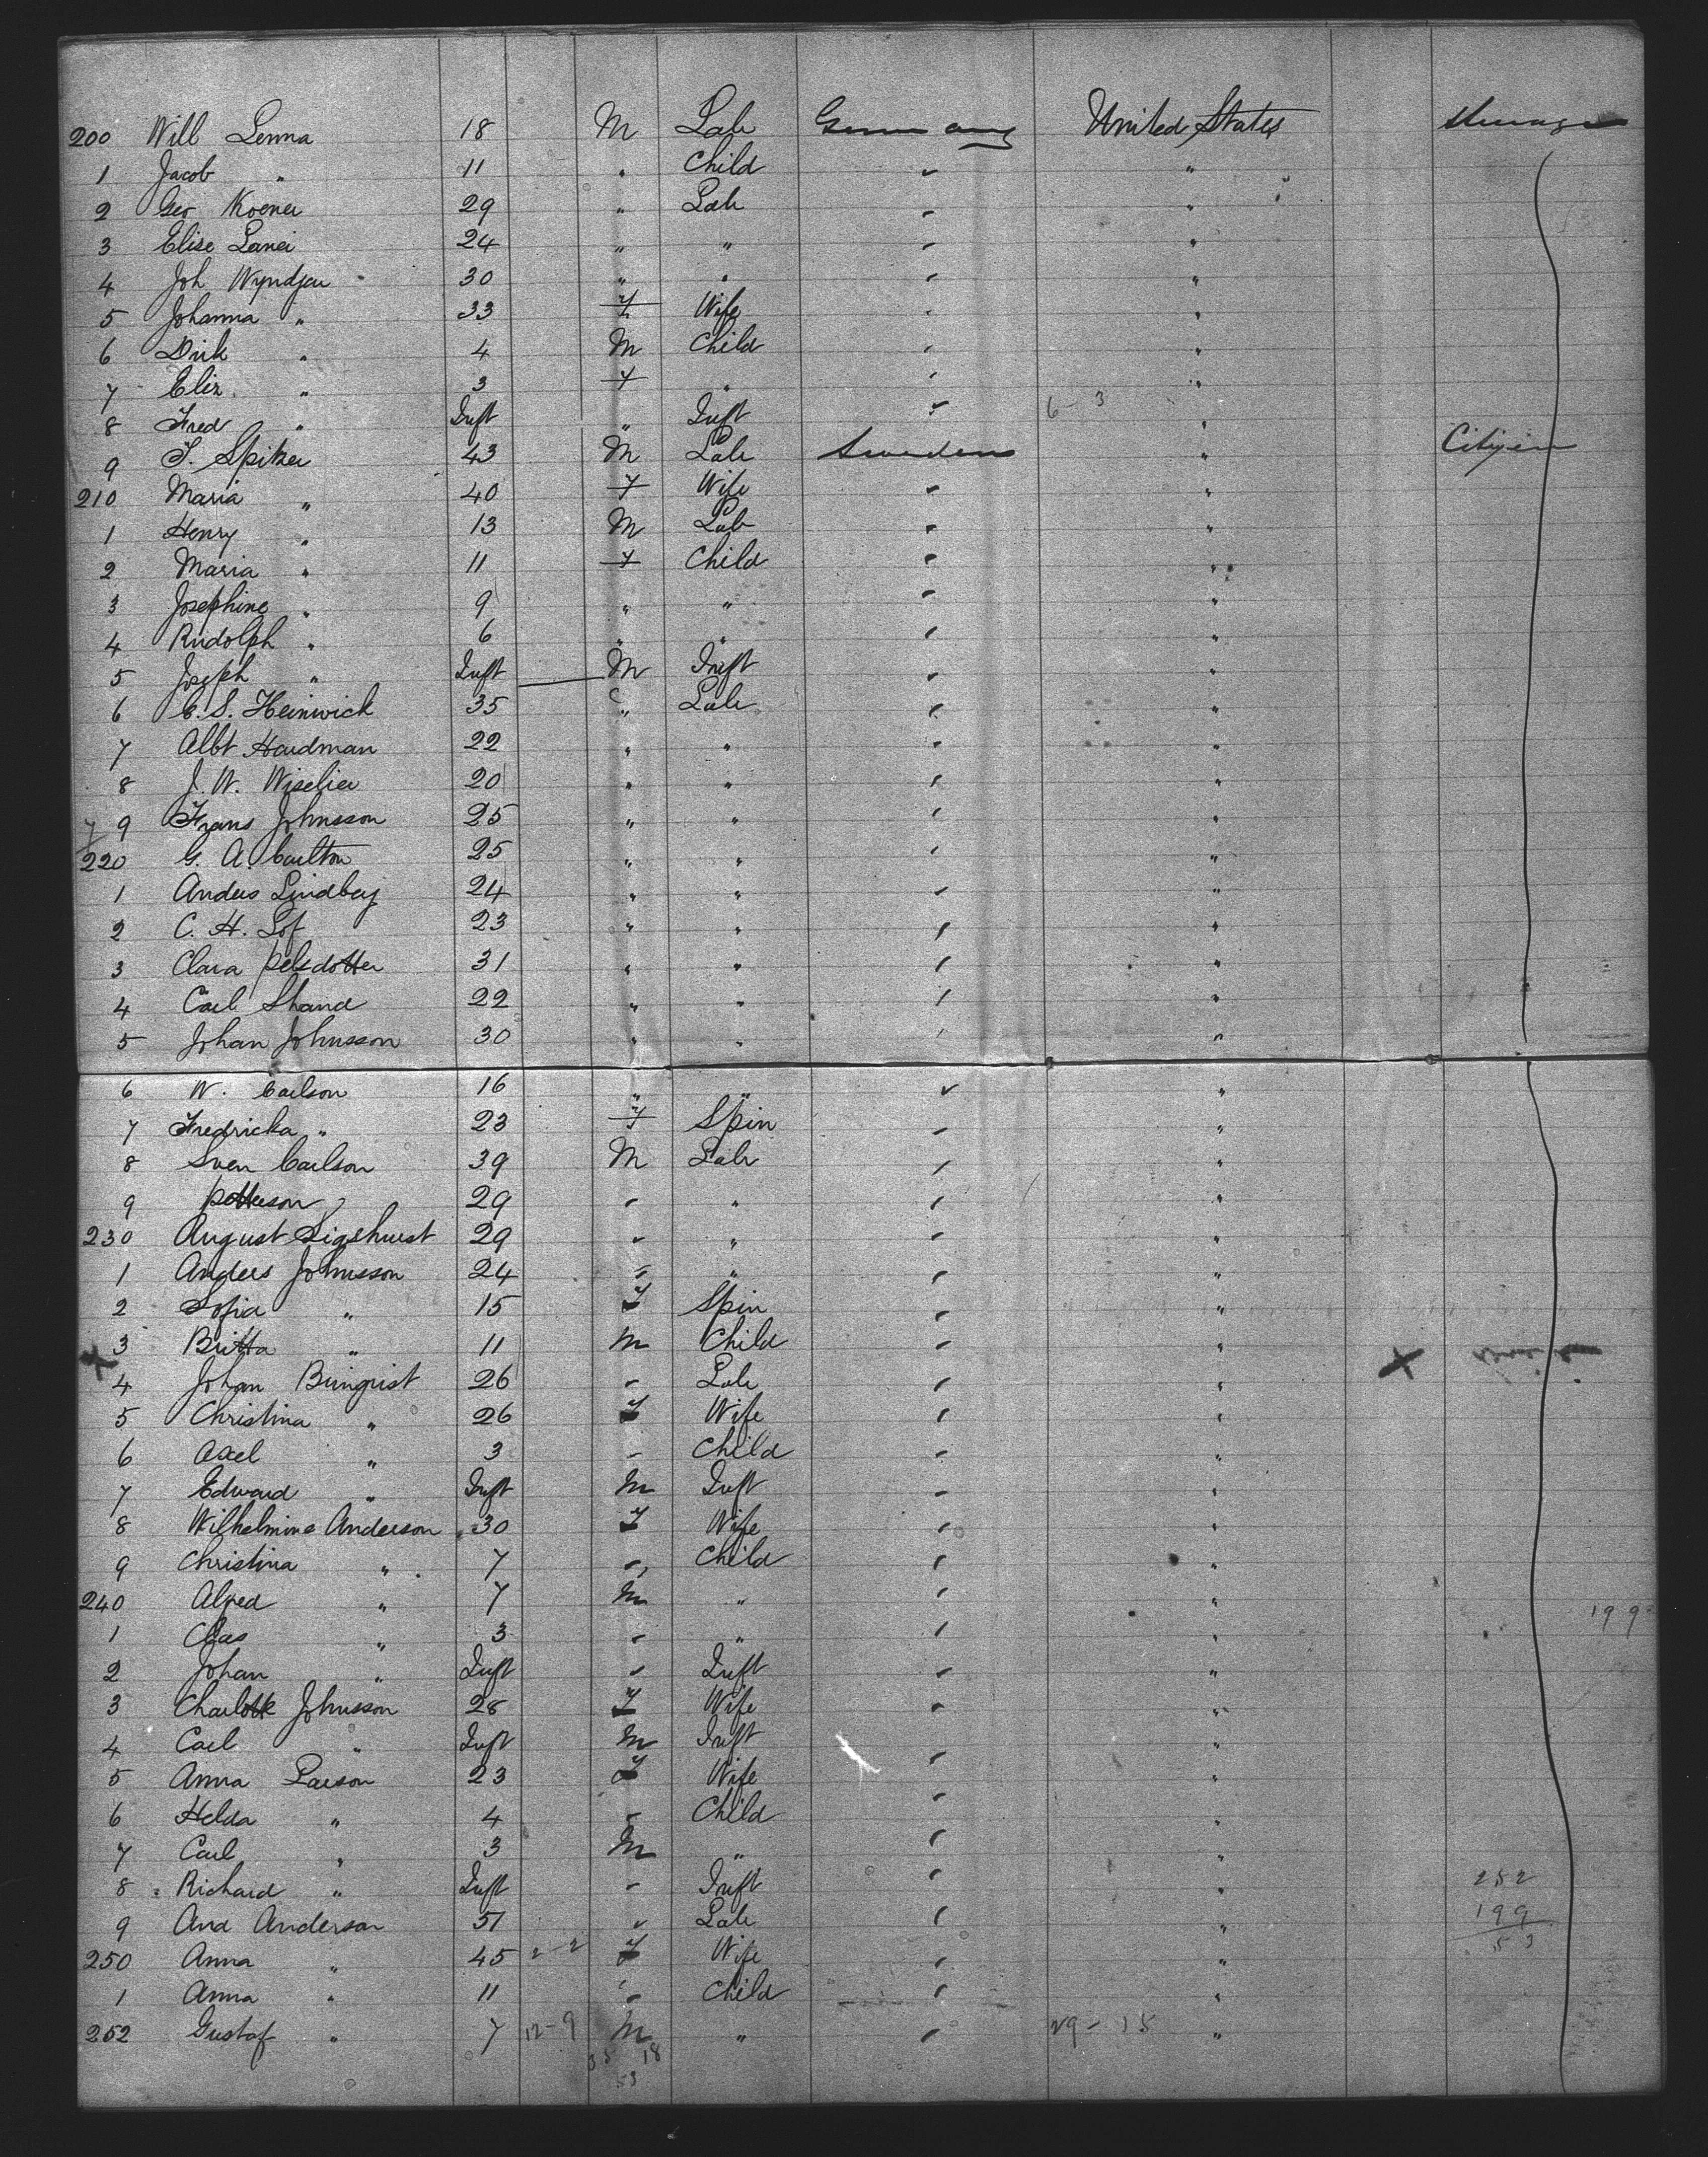 200 Will Lenna 18 M Lab Germany United States Steerage
1 Jacob " 11 " Child " "
2 Geo Koener 29 " Lab " "
3 Elise Lanei 24 " " " "
4 Joh Wyndjau 30 " " " "
5 Johanna " 33 F Wife " "
6 Dirk " 4 M Child " "
7 Eliz. " 3 F " " "
8 Fred " Inft " Inft " 6-3 "
9 T. Spitzer 43 M Lab Sweden " Citizen
210 Maria " 40 F Wife " "
1 Henry " 13 M Lab " "
2 Maria " 11 F Child " "
3 Josephine " 9 " " " "
4 Rudolph " 6 " " " "
5 Joseph " Inft M Inft " "
6 C. S. Heinwick 35 " Lab " "
7 Albt Hardman 22 " " " "
8 J. W. Wiselier 20 " " " "
9 Frans Johnsson 25 " " " "
220 G. A. Carlton 25 " " " "
1 Anders Lindberg 24 " " " "
2 C. H. Lof 23 " " " "
3 Clara Pelsdotter 31 " " " "
4 Carl Shand 22 " " " "
5 Johan Johnsson 30 " " " "
6 W. Carlson 16 " " " "
7 Fredricka " 23 F Spin " "
8 Sven Carlson 39 M Lab " "
9 Petterson 29 " " " "
230 August Sigehurst 29 " " " "
1 Anders Johnsson 24 " " " "
2 Sofia " 15 F Spin " "
3 Britta " 11 M Child " "
4 Johan Binqvist 26 " Lab " " X
5 Christina " 26 F Wife " "
6 Axel " 3 " Child " "
7 Edward " Inft M Inft " "
8 Wilhelmine Anderson 30 F Wife " "
9 Christina " 7 " Child " "
240 Alfred " 7 M " " " 199
1 Clas " 3 " " " "
2 Johan " Inft " Inft " "
3 Charlotte Johnsson 28 F Wife " "
4 Carl " Inft M Inft " "
5 Anna Larson 23 F Wife " "
6 Helda " 4 " Child " "
7 Carl " 3 M " " "
8 Richard " Inft " Inft " " 252
9 And Anderson 51 " Lab " " 199
250 Anna " 45 2-2 F Wife " " 53
1 Anna " 11 " Child " "
252 Gustaf " 7 12-9 M " " 29-15 "
35 18
53